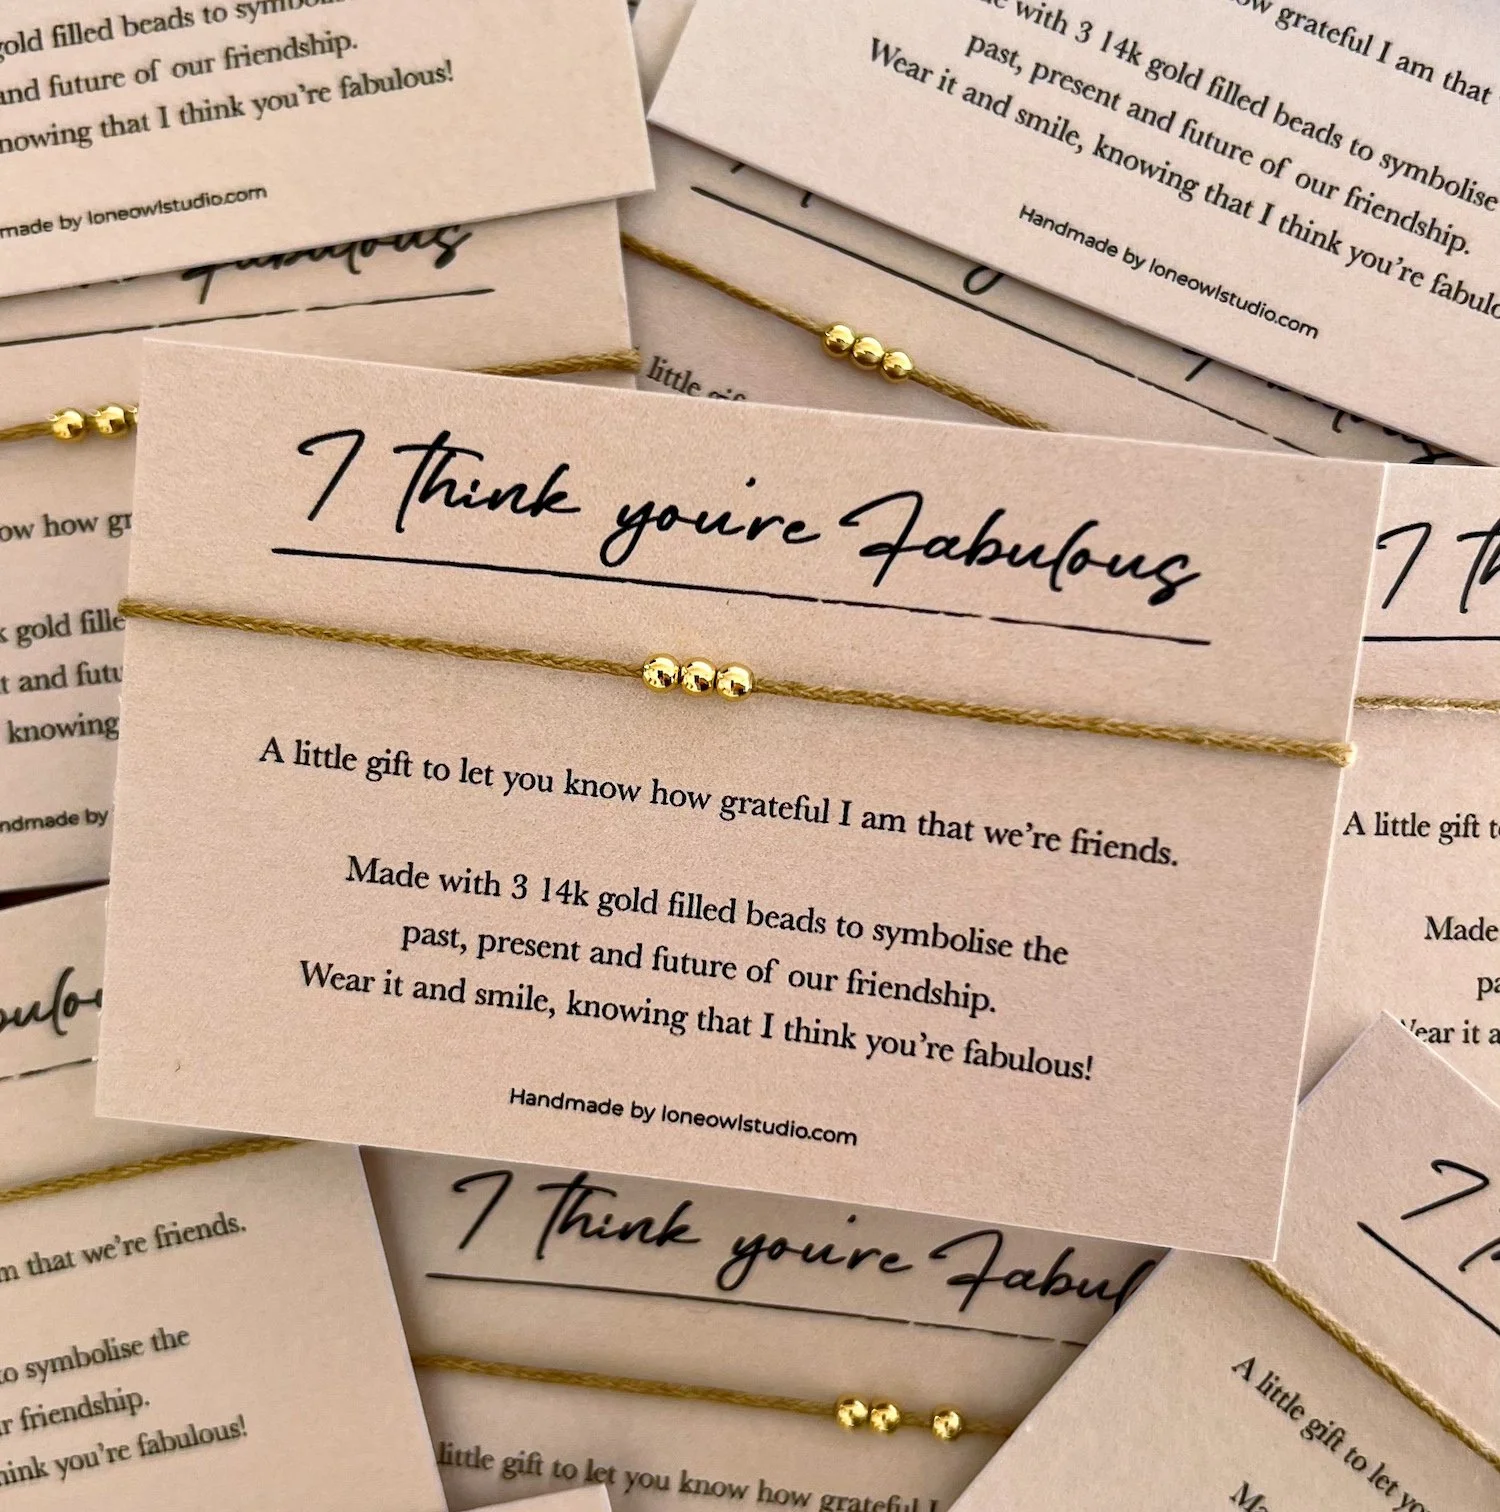 gold filled beads to
and future of our friendship.
knowing that I think you're fabulous!
made by loneowlstudio.com
Fabulous
grateful I am that
with 3 14k gold filled beads to symbolise
past, present and future of our friendship.
Wear it and smile, knowing that I think you're
Handmade by loneowlstudio.com
little
how gr
gold fille
t and futu
knowing
ndmade by
I think you're Fabulous
A little gift to let you know how grateful I am that we're friends.
Made with 3 14k gold filled beads to symbolise the
past, present and future of our friendship.
Wear it and smile, knowing that I think you're fabulous!
Handmade by loneowlstudio.com
I th
A little gift t
Made
pa
ear it a
bulo
m that we're friends.
to symbolise the
r friendship.
hink you're fabulous!
I think you're Fabul
little gift to let you know how grateful I
I
A little gift to let yo
Ma